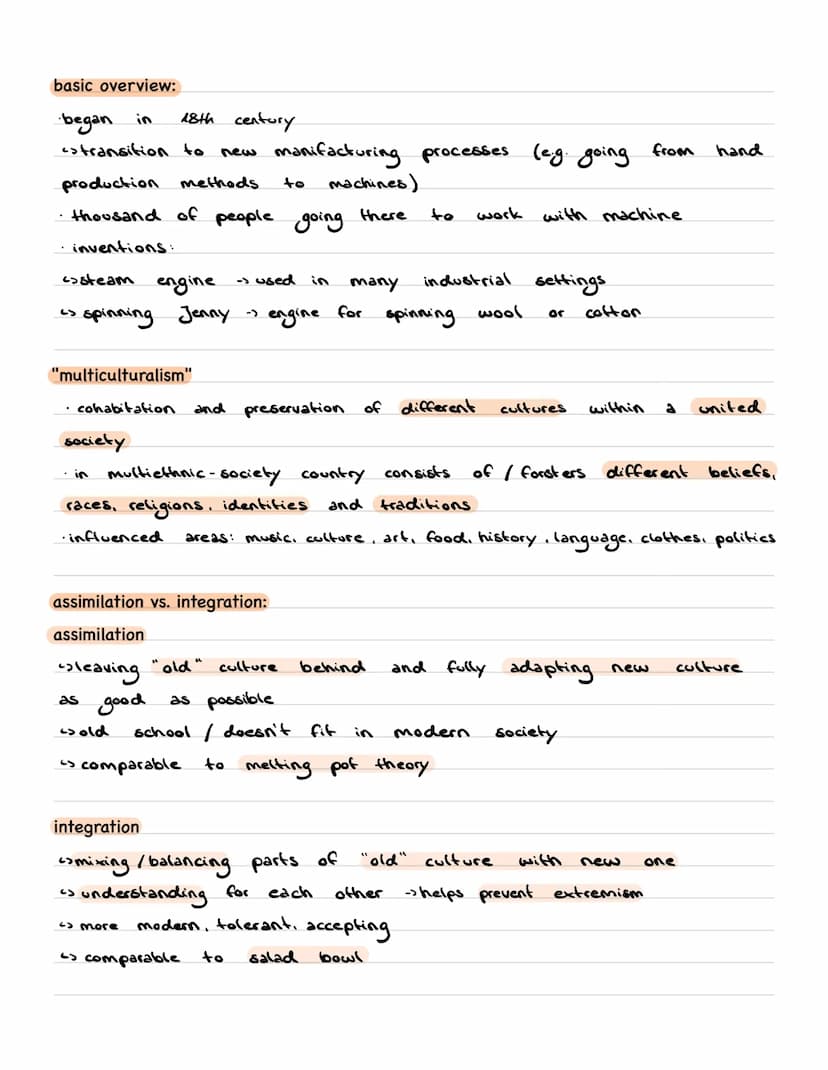 basic overview:
·began in 18th century
↳transition to new manifacturing processes (e.g. going from hand
production methods to machines)
· thousand of people going there to work with machine
· inventions:
↳steam engine -> used in many industrial settings
↳ spinning Jenny -> engine for spinning wool or cotton
"multiculturalism"
· cohabitation and preservation of different cultures within a united
society
· in multiethnic-society country consists of / forsters different beliefs,
races, religions, identities and traditions
·influenced areas: music, culture, art, food, history, language, clothes, politics
assimilation vs. integration:
assimilation
↳leaving "old" culture behind and fully adapting new culture
as good as possible
↳old school / doesn't fit in modern society
↳ comparable to melting pot theory
integration
↳mixing / balancing parts of "old" culture with new one
↳ understanding for each other -> helps prevent extremism
↳ more modern, tolerant, accepting
↳ comparable to salad bowl